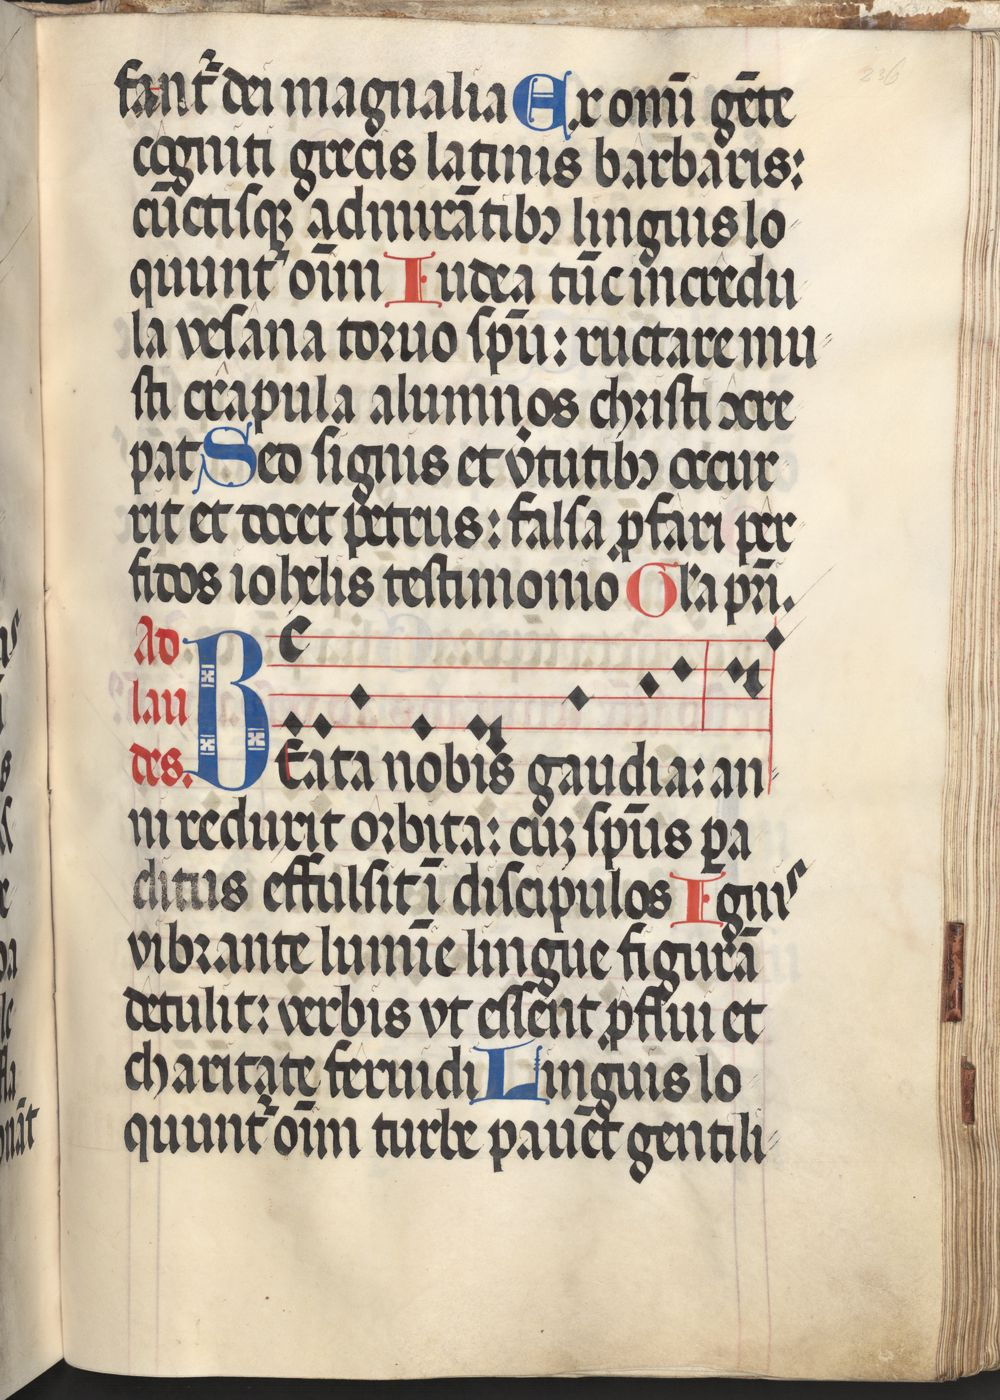 fant᷑ dei magnalia Ex om̄i gēte
cogniti grecis latinis barbaris:
cūctisqꝫ admirātibꝰ linguis lo
quunt᷑ oīm Iudea tūc incredu
la vesana toruo sp̄u: ructare mu
sti crapula alumnos christi ꝯcre
pat Sed signis et v̓tutibꝰ occur
rit et docet petrus: falsa ꝓfari per
fidos iohelis testimonio Gl̓a pr̄i.
Ad
lau
des.
Beata nobis gaudia: an
ni reduxit orbita: cūꝫ sp̄us ꝑa
ditus effulsit ī discipulos Ignis
vibrante lumīe lingue figurā
detulit: verbis vt essent ꝓflui et
charitate feruidi Linguis lo
quunt᷑ oīm turbe pauēt gentili
236